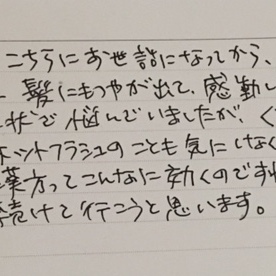 こちらにお世話になってから、
髪にもつやが出て、感動し
状で悩んでいましたが、く
ホットフラッシュのことも気にしなく
漢方ってこんなに効くのですね
続けて行こうと思います。